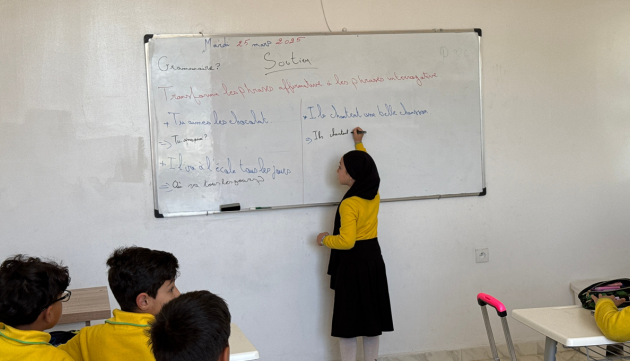 Mardi 25 mars 2025
Grammaire?
Soutien
Transformer les phrases affirmative à les phrases interrogative
Tu aimes les chocolat.
⇒ Tu
Il va à l'école tous les jours
⇒ Où va
Ils chantent une belle chanson
⇒ Ils chantent